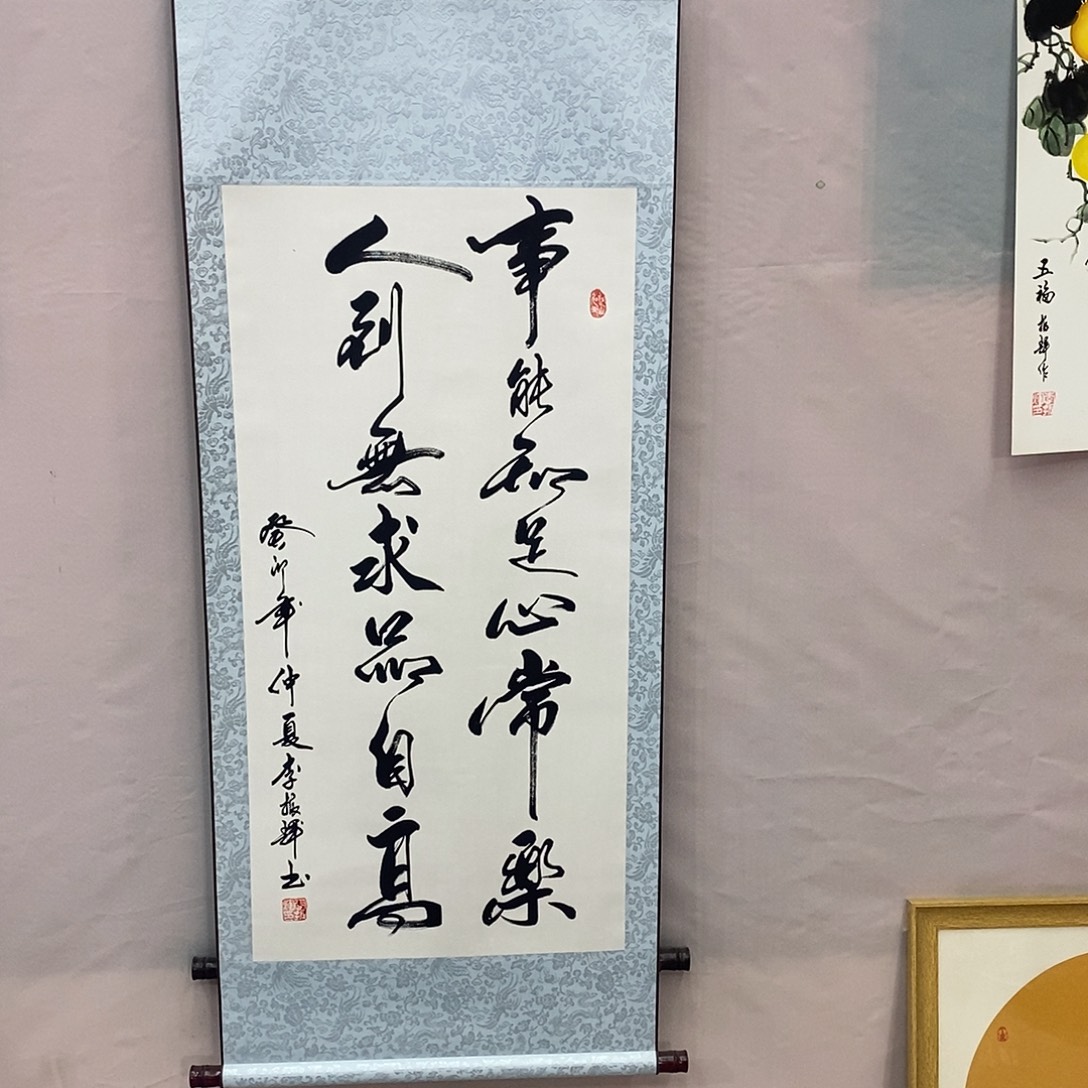 事能知足心常樂
人到無求品自高
癸卯年仲夏李振輝书
五福 振輝作